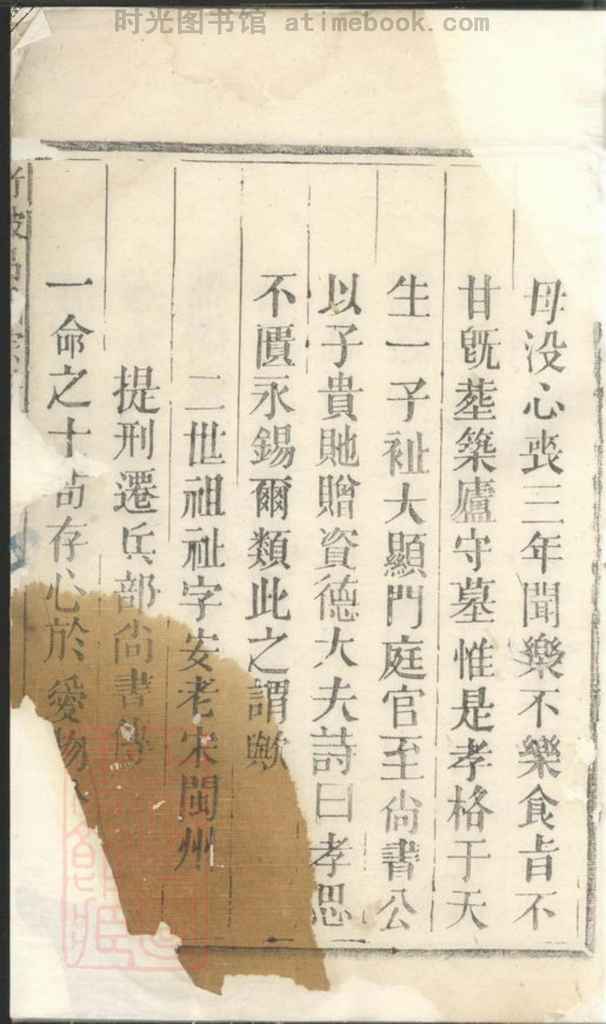 时光图书馆 atimebook.com
母没心喪三年聞樂不樂食旨不
甘旣塟築廬守墓惟是孝格于天
生一子祉大顯門庭官至尙書公
以子貴貤贈資德大夫詩曰孝思
不匱永錫爾類此之謂歟
二世祖祉字安老宋閩州
提刑遷兵部尙書
一命之士尙存心於愛物